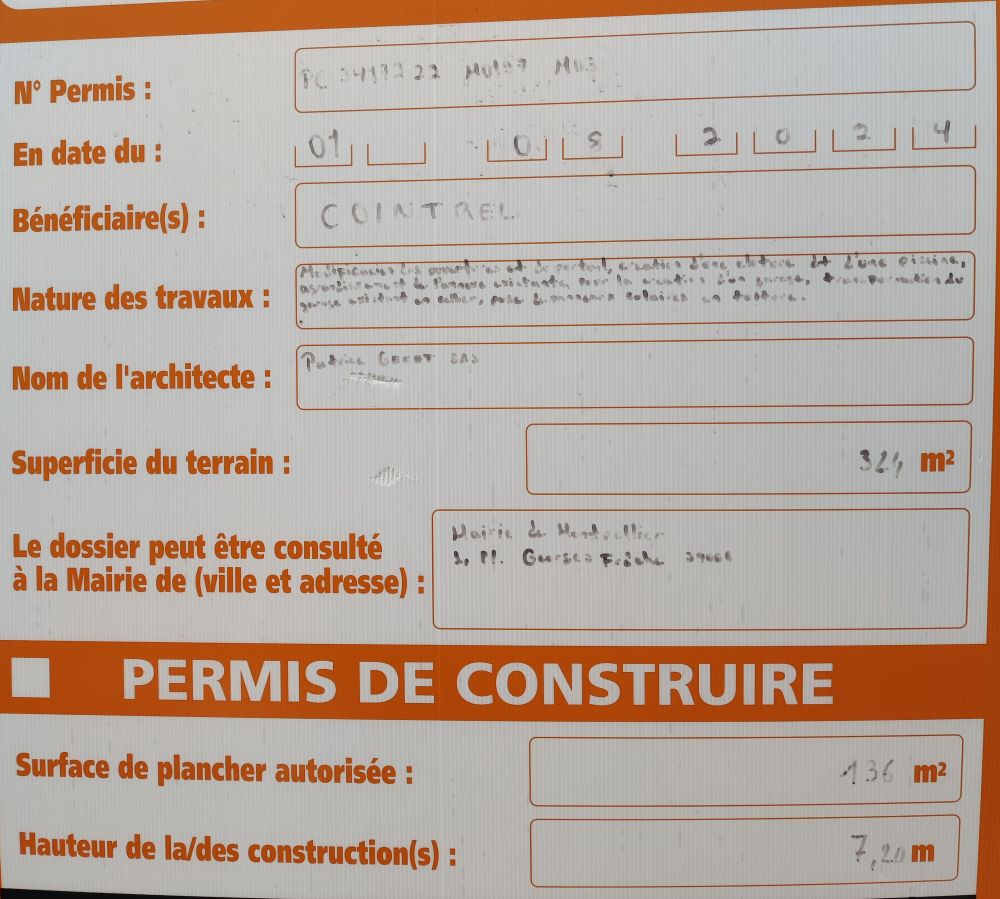 N° Permis : PC 3417222 M0157 M03
En date du : 01 05 2024
Bénéficiaire(s) : COINTREL
Modification des ouvertures et du portail, création d'une cloture et d'une piscine,
Nature des travaux : agrandissement de l'annexe existante pour la création d'un garage, transformation du
garage existant en cellier, pose de panneaux solaires en toiture.
Nom de l'architecte : Patrice GENET SAS
Superficie du terrain : 324 m²
Le dossier peut être consulté Mairie de Montpellier
à la Mairie de (ville et adresse) : 1, Pl. Georges Frêche 34000
PERMIS DE CONSTRUIRE
Surface de plancher autorisée : 136 m²
Hauteur de la/des construction(s) : 7,20 m